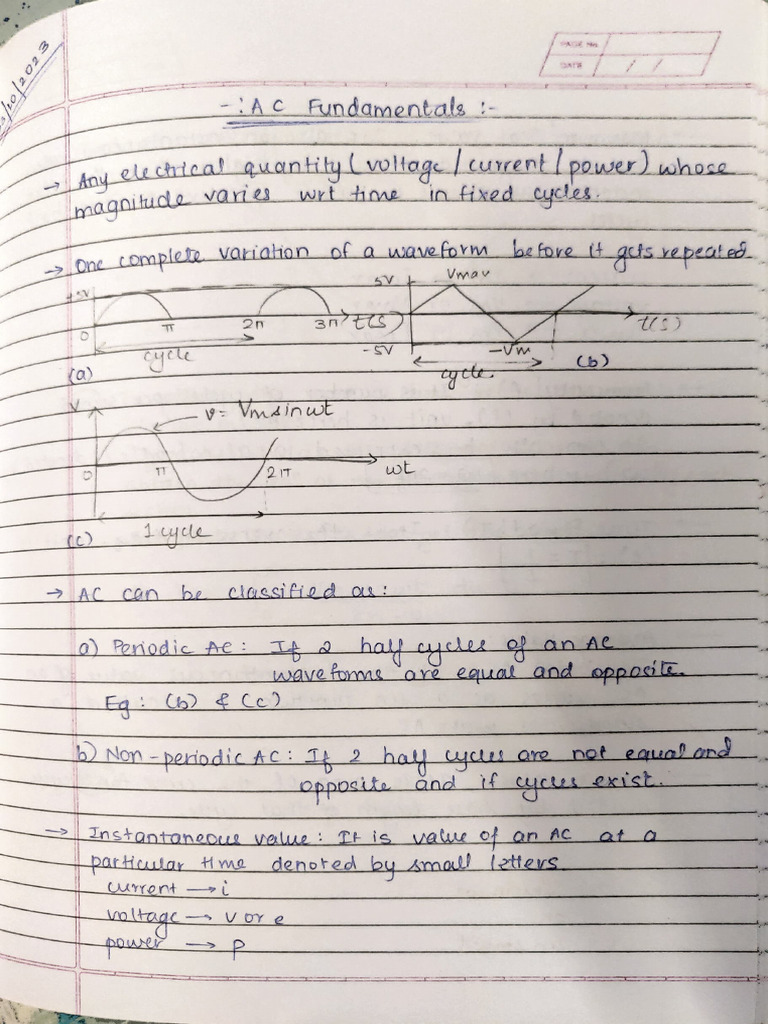 /10/2023
PAGE No.
DATE / /
-: AC Fundamentals :-
→ Any electrical quantity (voltage/current/power) whose
magnitude varies wrt time in fixed cycles.
→ One complete variation of a waveform before it gets repeated.
+5V
0 π 2π 3π t(s)
cycle
(a)
5V Vmax
t(s)
-5V -Vm
cycle.
(b)
V
v = Vm sin ωt
0 π 2π ωt
1 cycle
(c)
→ AC can be classified as:
a) Periodic AC: If 2 half cycles of an AC
waveforms are equal and opposite.
Eg: (b) & (c)
b) Non-periodic AC: If 2 half cycles are not equal and
opposite and if cycles exist.
→ Instantaneous value: It is value of an AC at a
particular time denoted by small letters.
current → i
voltage → v or e
power → p